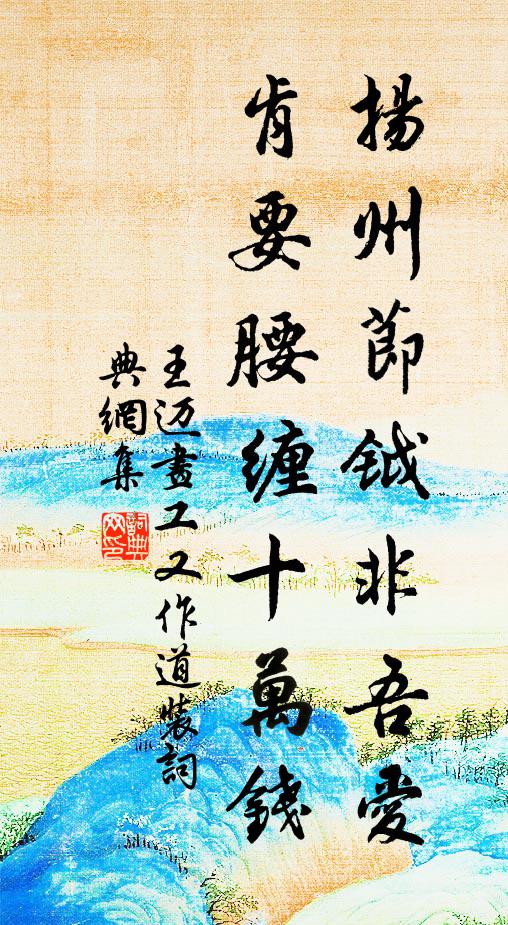 揚州節鉞非吾愛
肯要腰纏十萬錢
王迈畫工又作道裝詞
典網集
詞典網印